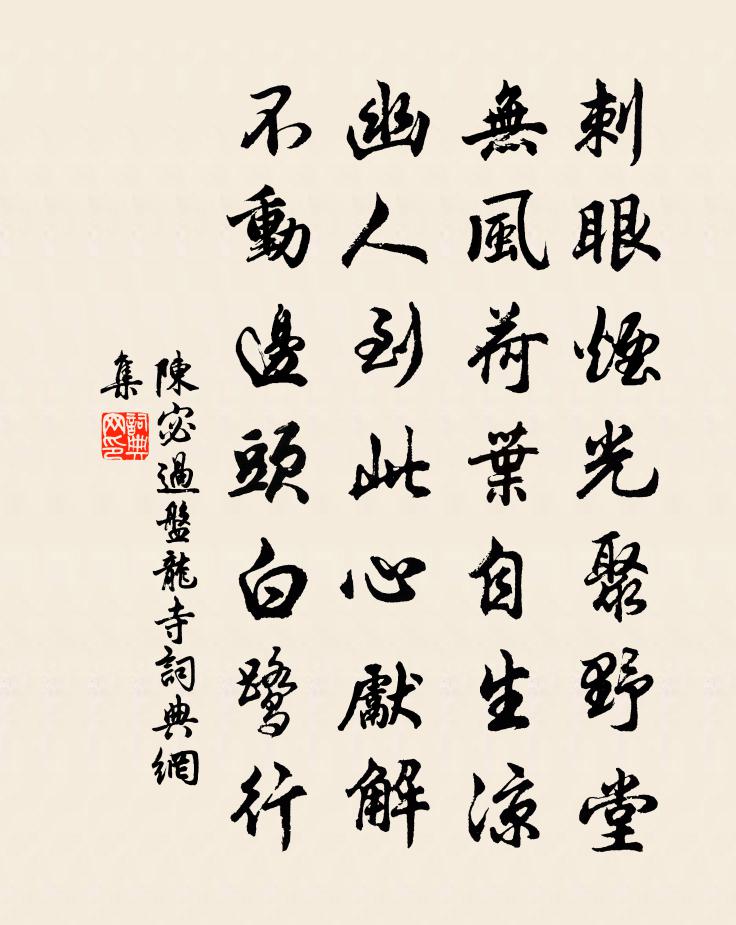 刺眼煙光聚野堂
無風荷葉自生涼
幽人到此心獻解
不動邊頭白鷺行
陳宓過盤龍寺詞典網
集
詞典网印